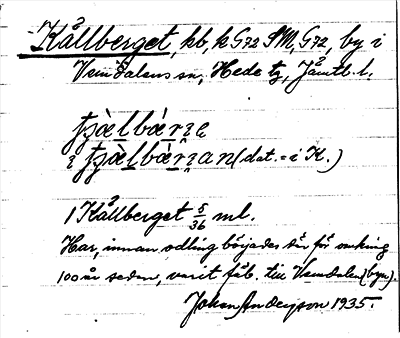 Kållberget, kb, k G72 SM, G72, by i
Vemdalens sn, Hede tg, Jämtl. l.
1 Kållberget 5/36 ml.
Har, innan odling började där för omkring
100 år sedan, varit fäb. till Vemdalen (byn).
Johan Anderson 1935.